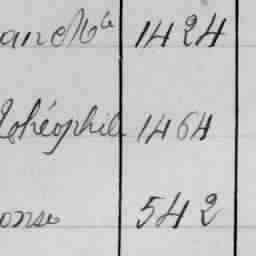 1424
Théophile 1464
onse 542